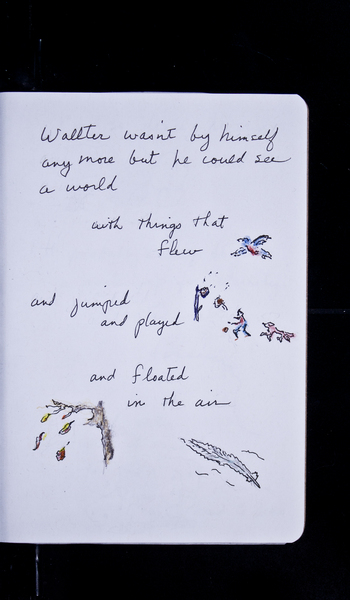 Wallter wasn't by himself
any more but he could see
a world
with things that
flew
and jumped
and played
and floated
in the air